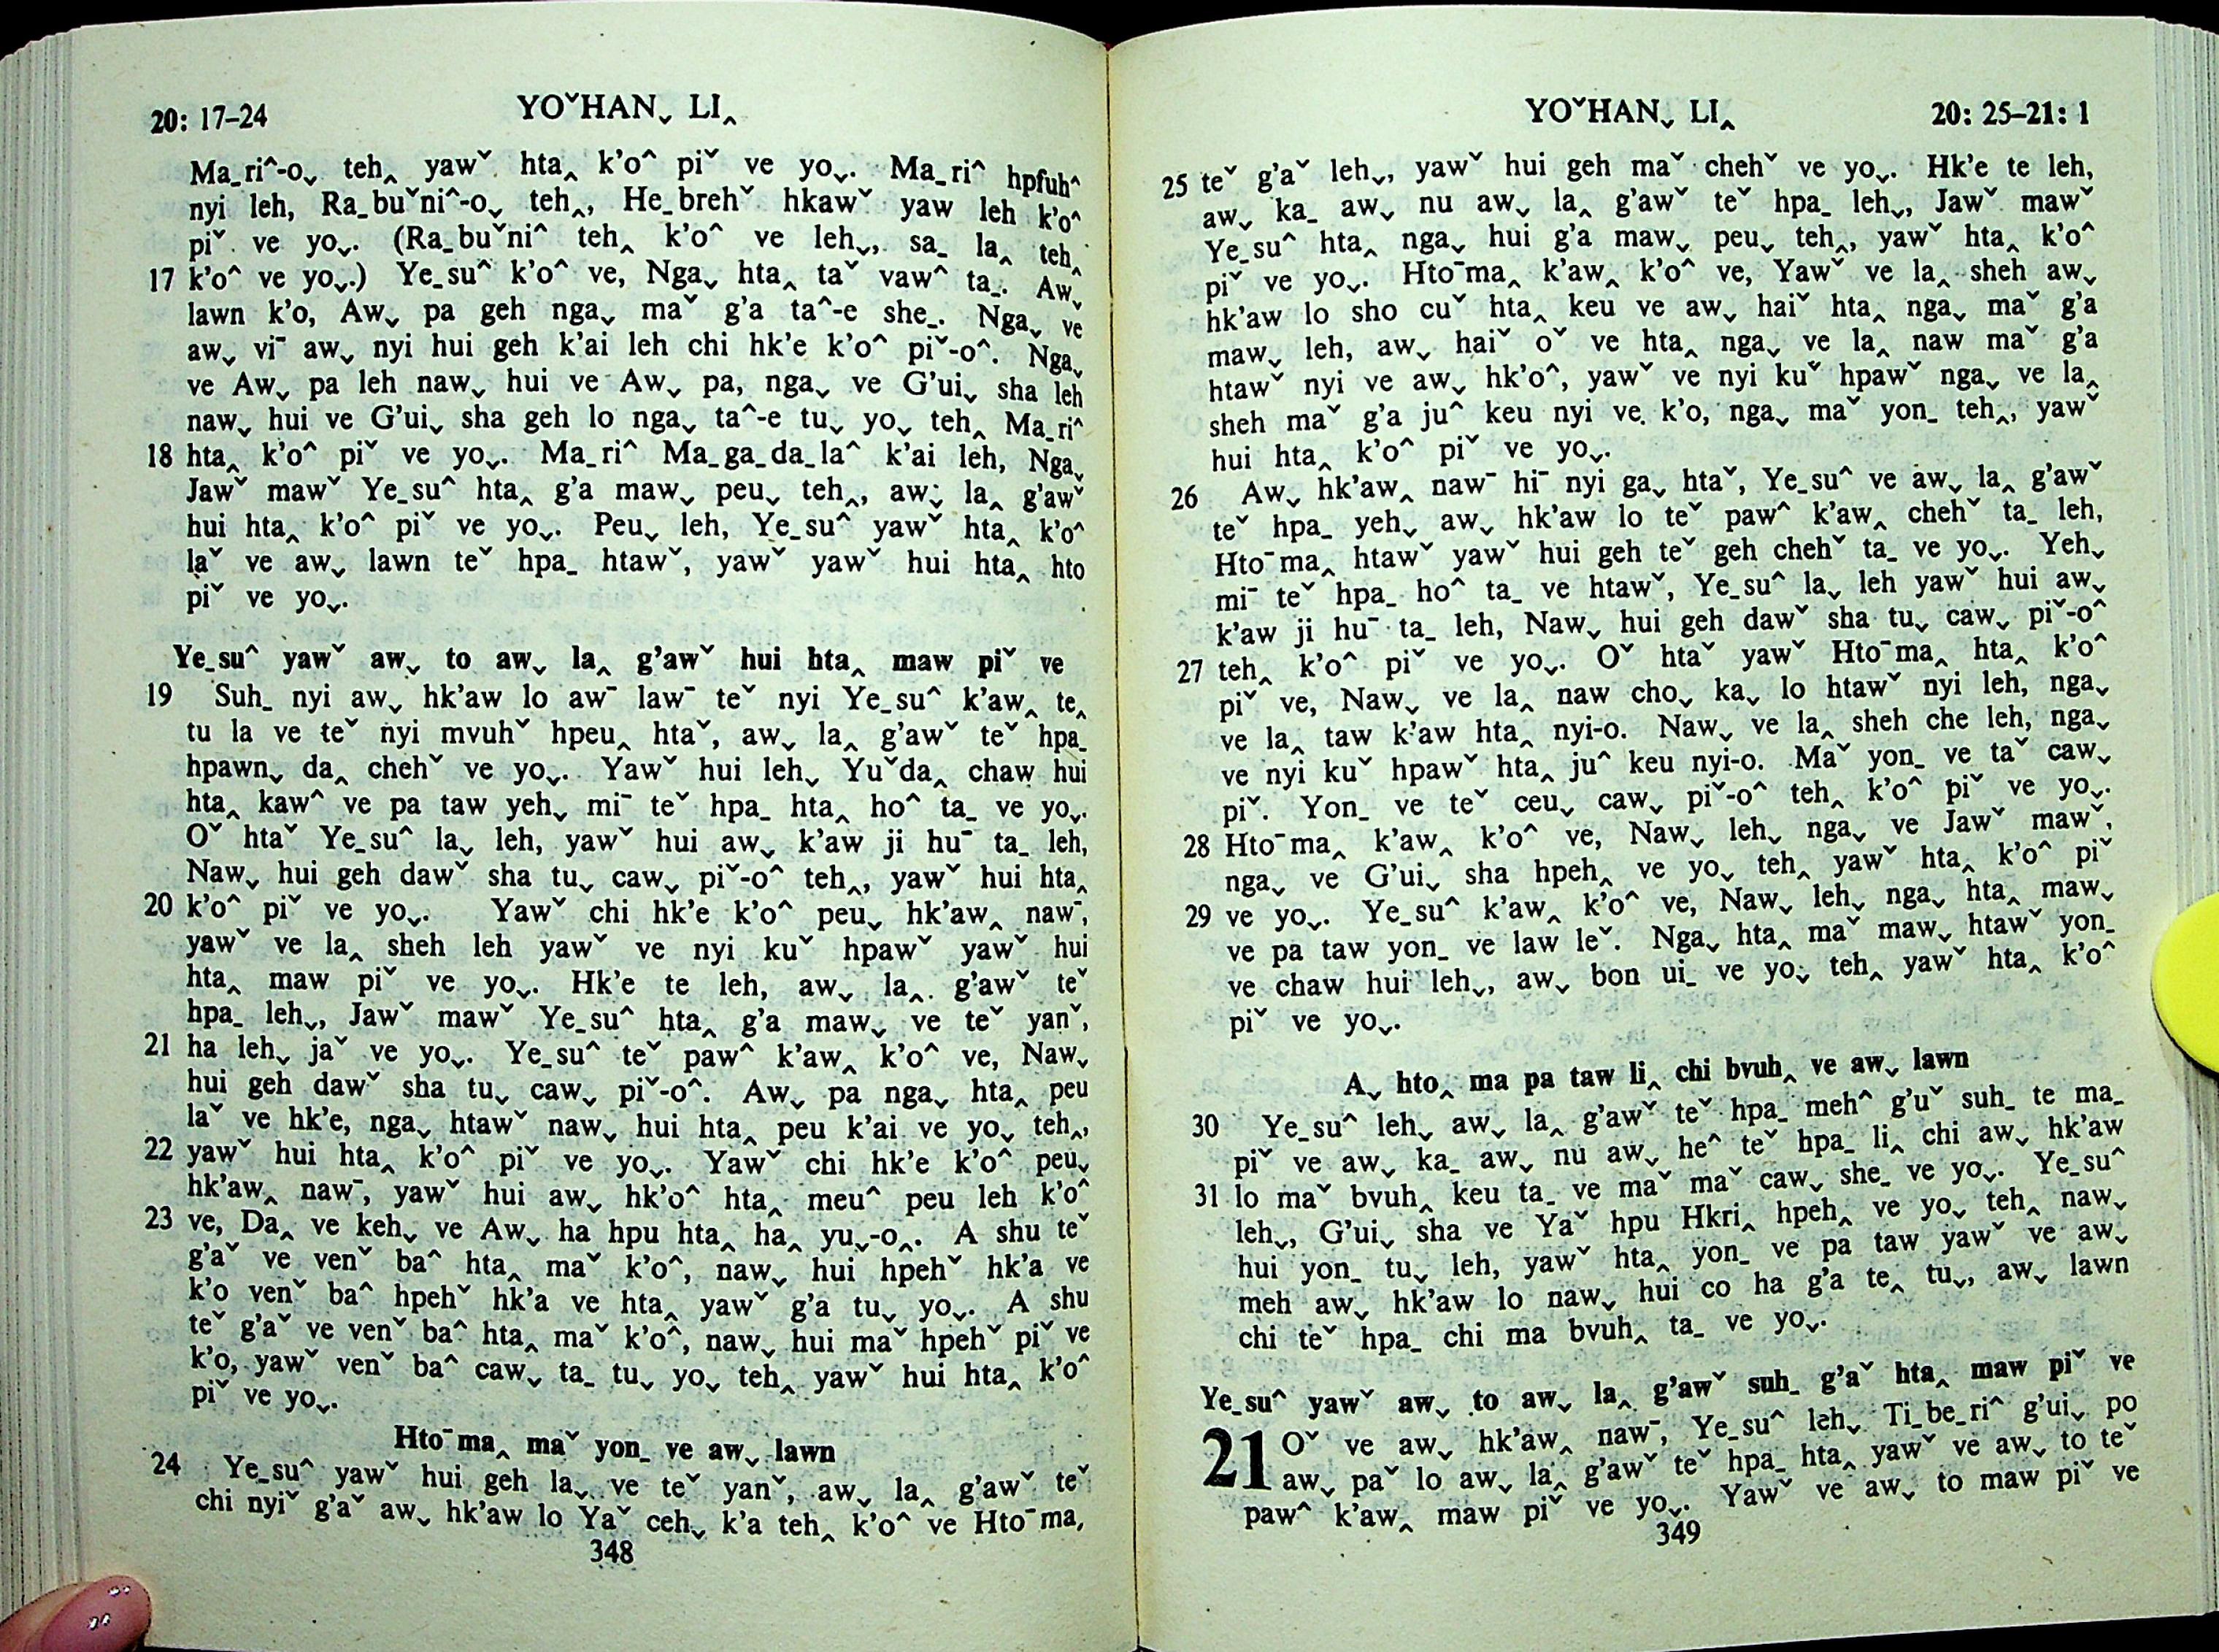 20: 17–24
YOˇHANˬ LI‸
Ma_ri^-oˬ teh‸ yawˇ hta‸ k'o^ piˇ ve yoˬ. Ma_ri^ hpfuh^
nyi leh, Ra_buˇni^-oˬ teh‸, He_brehˇ hkawˇ yaw leh k'o^
piˇ ve yoˬ. (Ra_buˇni^ teh‸ k'o^ ve lehˬ, sa_ la‸ teh‸
17 k'o^ ve yoˬ.) Ye_su^ k'o^ ve, Ngaˬ hta‸ taˇ vaw^ ta_. Awˬ
lawn k'o, Awˬ pa geh ngaˬ maˇ g'a ta^-e she_. Ngaˬ ve
awˬ viˉ awˬ nyi hui geh k'ai leh chi hk'e k'o^ piˇ-o^. Ngaˬ
ve Awˬ pa leh nawˬ hui ve Awˬ pa, ngaˬ ve G'uiˬ sha leh
nawˬ hui ve G'uiˬ sha geh lo ngaˬ ta^-e tuˬ yoˬ teh‸ Ma_ri^
18 hta‸ k'o^ piˇ ve yoˬ. Ma_ri^ Ma_ga_da_la^ k'ai leh, Ngaˬ
Jawˇ mawˇ Ye_su^ hta‸ g'a mawˬ peuˬ teh‸, awˬ la‸ g'awˇ
hui hta‸ k'o^ piˇ ve yoˬ. Peuˬ leh, Ye_su^ yawˇ hta‸ k'o^
laˇ ve awˬ lawn teˇ hpa_ htawˇ, yawˇ yawˇ hui hta‸ hto
piˇ ve yoˬ.
Ye_su^ yawˇ awˬ to awˬ la‸ g'awˇ hui hta‸ maw piˇ ve
19 Suh_ nyi awˬ hk'aw lo awˉ lawˉ teˇ nyi Ye_su^ k'aw‸ te‸
tu la ve teˇ nyi mvuhˇ hpeu‸ htaˇ, awˬ la‸ g'awˇ teˇ hpa_
hpawnˬ da‸ chehˇ ve yoˬ. Yawˇ hui lehˬ Yuˇda‸ chaw hui
hta‸ kaw^ ve pa taw yehˬ miˉ teˇ hpa_ hta‸ ho^ ta_ ve yoˬ.
Oˇ htaˇ Ye_su^ laˬ leh, yawˇ hui awˬ k'aw ji huˉ ta_ leh,
Nawˬ hui geh dawˇ sha tuˬ cawˬ piˇ-o^ teh‸, yawˇ hui hta‸
20 k'o^ piˇ ve yoˬ. Yawˇ chi hk'e k'o^ peuˬ hk'aw‸ nawˉ,
yawˇ ve la‸ sheh leh yawˇ ve nyi kuˇ hpawˇ yawˇ hui
hta‸ maw piˇ ve yoˬ. Hk'e te leh, awˬ la‸ g'awˇ teˇ
hpa_ lehˬ, Jawˇ mawˇ Ye_su^ hta‸ g'a mawˬ ve teˇ yanˇ,
21 ha lehˬ jaˇ ve yoˬ. Ye_su^ teˇ paw^ k'aw‸ k'o^ ve, Nawˬ
hui geh dawˇ sha tuˬ cawˬ piˇ-o^. Awˬ pa ngaˬ hta‸ peu
laˇ ve hk'e, ngaˬ htawˇ nawˬ hui hta‸ peu k'ai ve yoˬ teh‸,
22 yawˇ hui hta‸ k'o^ piˇ ve yoˬ. Yawˇ chi hk'e k'o^ peuˬ
hk'aw‸ nawˉ, yawˇ hui awˬ hk'o^ hta‸ meu^ peu leh k'o^
23 ve, Da‸ ve kehˬ ve Awˬ ha hpu hta‸ ha‸ yuˬ-o‸. A shu teˇ
g'aˇ ve venˇ ba^ hta‸ maˇ k'o^, nawˬ hui hpehˇ hk'a ve
k'o venˇ ba^ hpehˇ hk'a ve hta‸ yawˇ g'a tuˬ yoˬ. A shu
teˇ g'aˇ ve venˇ ba^ hta‸ maˇ k'o^, nawˬ hui maˇ hpehˇ piˇ ve
k'o, yawˇ venˇ ba^ cawˬ ta_ tuˬ yoˬ teh‸ yawˇ hui hta‸ k'o^
piˇ ve yoˬ.
Htoˉma‸ maˇ yon_ ve awˬ lawn
24 Ye_su^ yawˇ hui geh laˬ ve teˇ yanˇ, awˬ la‸ g'awˇ teˇ
chi nyiˇ g'aˇ awˬ hk'aw lo Yaˇ cehˬ k'a teh‸ k'o^ ve Htoˉma,
348
YOˇHANˬ LI‸
20: 25–21: 1
25 teˇ g'aˇ lehˬ, yawˇ hui geh maˇ chehˇ ve yoˬ. Hk'e te leh,
awˬ ka_ awˬ nu awˬ la‸ g'awˇ teˇ hpa_ lehˬ, Jawˇ mawˇ
Ye_su^ hta‸ ngaˬ hui g'a mawˬ peuˬ teh‸, yawˇ hta‸ k'o^
piˇ ve yoˬ. Htoˉma‸ k'aw‸ k'o^ ve, Yawˇ ve la‸ sheh awˬ
hk'aw lo sho cuˇ hta‸ keu ve awˬ haiˇ hta‸ ngaˬ maˇ g'a
mawˬ leh, awˬ haiˇ oˇ ve hta‸ ngaˬ ve la‸ naw maˇ g'a
htawˇ nyi ve awˬ hk'o^, yawˇ ve nyi kuˇ hpawˇ ngaˬ ve la‸
sheh maˇ g'a ju^ keu nyi ve k'o, ngaˬ maˇ yon_ teh‸, yawˇ
hui hta‸ k'o^ piˇ ve yoˬ.
26 Awˬ hk'aw‸ nawˉ hiˉ nyi gaˬ htaˇ, Ye_su^ ve awˬ la‸ g'awˇ
teˇ hpa_ yehˬ awˬ hk'aw lo teˇ paw^ k'aw‸ chehˇ ta_ leh,
Htoˉma‸ htawˇ yawˇ hui geh teˇ geh chehˇ ta_ ve yoˬ. Yehˬ
miˉ teˇ hpa_ ho^ ta_ ve htawˇ, Ye_su^ laˬ leh yawˇ hui awˬ
k'aw ji huˉ ta_ leh, Nawˬ hui geh dawˇ sha tuˬ cawˬ piˇ-o^
27 teh‸ k'o^ piˇ ve yoˬ. Oˇ htaˇ yawˇ Htoˉma‸ hta‸ k'o^
piˇ ve, Nawˬ ve la‸ naw choˬ kaˬ lo htawˇ nyi leh, ngaˬ
ve la‸ taw k'aw hta‸ nyi-o. Nawˬ ve la‸ sheh che leh, ngaˬ
ve nyi kuˇ hpawˇ hta‸ ju^ keu nyi-o. Maˇ yon_ ve taˇ cawˬ
piˇ. Yon_ ve teˇ ceuˬ cawˬ piˇ-o^ teh‸ k'o^ piˇ ve yoˬ.
28 Htoˉma‸ k'aw‸ k'o^ ve, Nawˬ lehˬ ngaˬ ve Jawˇ mawˇ,
ngaˬ ve G'uiˬ sha hpeh‸ ve yoˬ teh‸ yawˇ hta‸ k'o^ piˇ
29 ve yoˬ. Ye_su^ k'aw‸ k'o^ ve, Nawˬ lehˬ ngaˬ hta‸ mawˬ
ve pa taw yon_ ve law leˇ. Ngaˬ hta‸ maˇ mawˬ htawˇ yon_
ve chaw hui lehˬ, awˬ bon ui_ ve yoˬ teh‸ yawˇ hta‸ k'o^
piˇ ve yoˬ.
Aˬ hto‸ ma pa taw li‸ chi bvuh‸ ve awˬ lawn
30 Ye_su^ lehˬ awˬ la‸ g'awˇ teˇ hpa_ meh^ g'uˇ suh_ te ma_
piˇ ve awˬ ka_ awˬ nu awˬ he^ teˇ hpa_ li‸ chi awˬ hk'aw
31 lo maˇ bvuh‸ keu ta_ ve maˇ maˇ cawˬ she_ ve yoˬ. Ye_su^
lehˬ, G'uiˬ sha ve Yaˇ hpu Hkri‸ hpeh‸ ve yoˬ teh‸ nawˬ
hui yon_ tuˬ leh, yawˇ hta‸ yon_ ve pa taw yawˇ ve awˬ
meh awˬ hk'aw lo nawˬ hui co ha g'a te‸ tuˬ, awˬ lawn
chi teˇ hpa_ chi ma bvuh‸ ta_ ve yoˬ.
Ye_su^ yawˇ awˬ to awˬ la‸ g'awˇ suh_ g'aˇ hta‸ maw piˇ ve
21 Oˇ ve awˬ hk'aw‸ nawˉ, Ye_su^ lehˬ Ti_be_ri^ g'uiˬ po
awˬ paˇ lo awˬ la‸ g'awˇ teˇ hpa_ hta‸ yawˇ ve awˬ to teˇ
paw^ k'aw‸ maw piˇ ve yoˬ. Yawˇ ve awˬ to maw piˇ ve
349